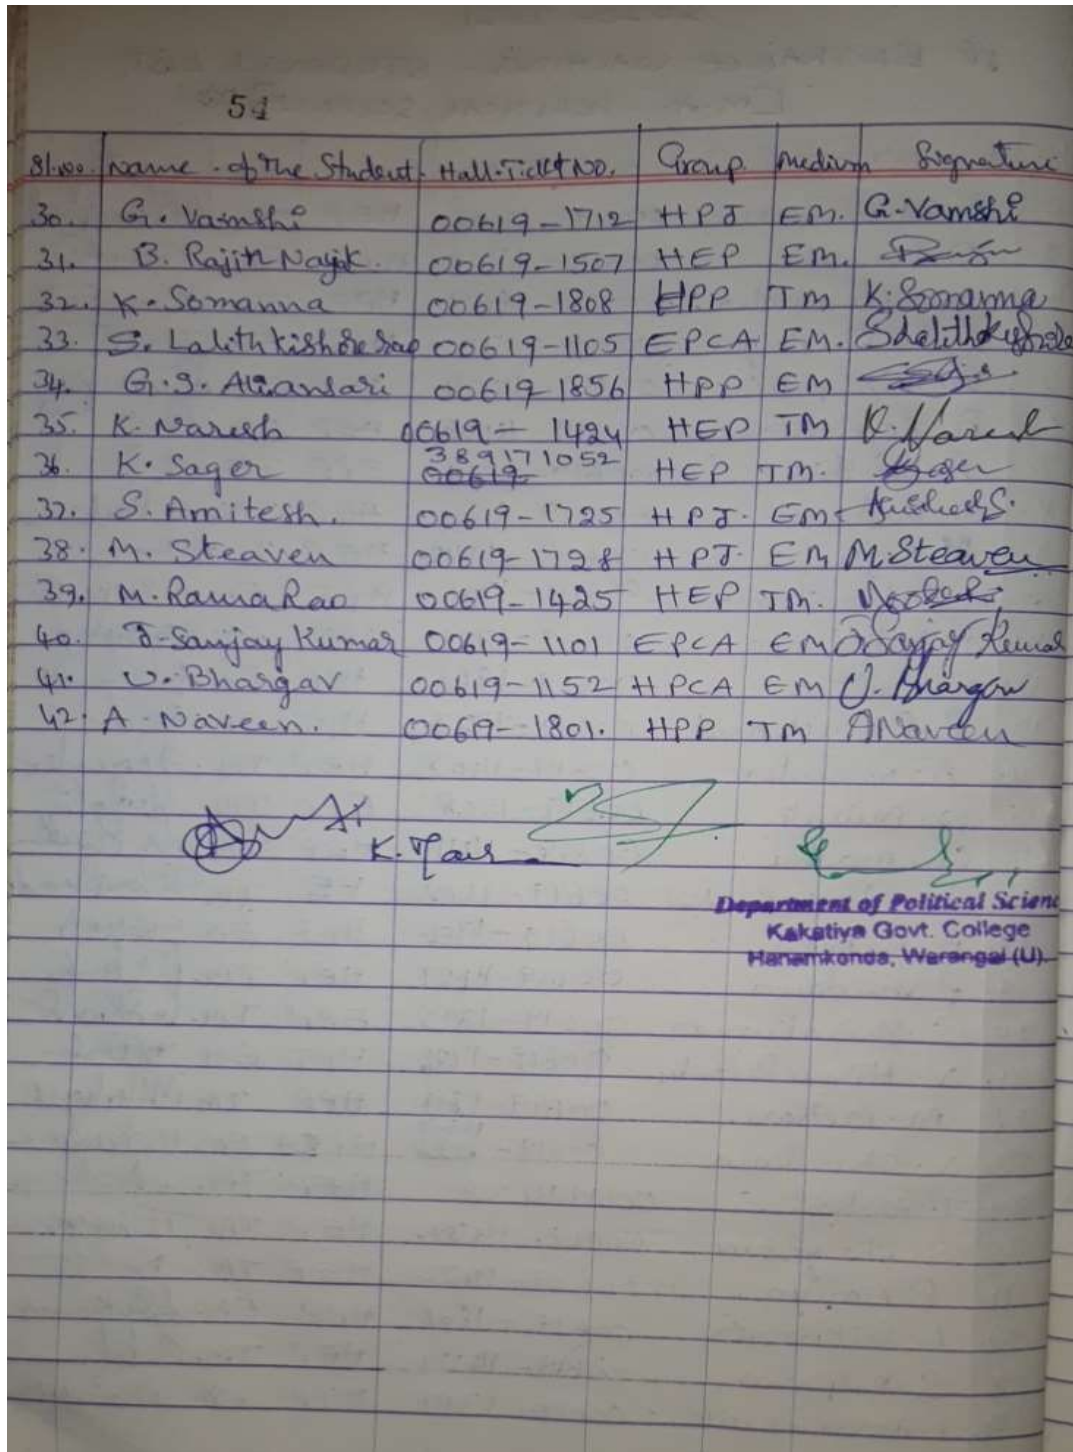 54
Sl.no. Name of the Student Hall.Ticket No. Group Medium Signature
30. G. Vamshi 00619-1712 HPJ EM. G.Vamshi
31. B. Rajith Nayak. 00619-1507 HEP EM.
32. K. Somanna 00619-1808 HPP TM K.Somanna
33. S. Lalith Kishore Rao 00619-1105 EPCA EM. SLalithKishore
34. G.S. Aliansari 00619-1856 HPP EM
35. K. Naresh 00619-1424 HEP TM K.Naresh
36. K. Sager 389171052 00619 HEP TM. Sager
37. S. Amitesh. 00619-1725 HPJ. EM
38. M. Steaven 00619-1728 HPJ. EM M.Steaven
39. M. Rama Rao 00619-1425 HEP TM.
40. J. Sanjay Kumar 00619-1101 EPCA EM J.Sanjay Kumar
41. V. Bhargav 00619-1152 HPCA EM V. Bhargav
42. A. Naveen. 00619-1801. HPP TM ANaveen
Department of Political Scienc
Kakatiya Govt. College
Hanamkonda, Warangal (U).